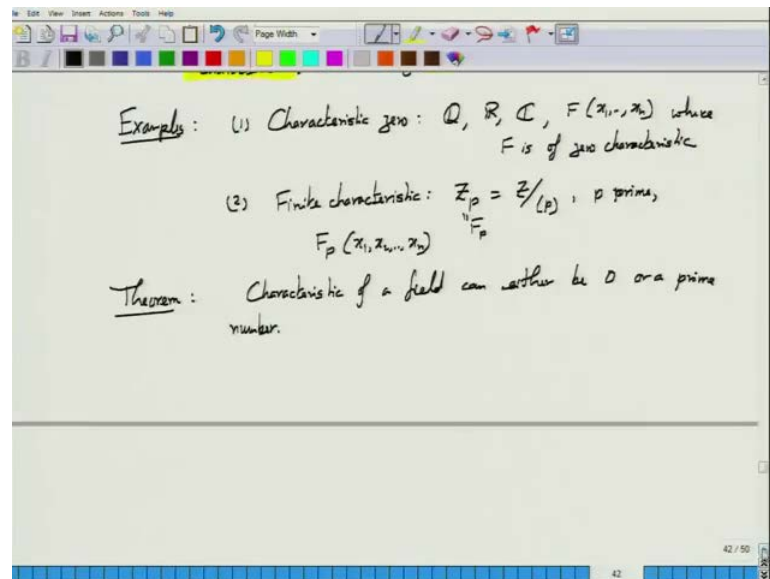 File Edit View Insert Actions Tools Help
Page Width
Examples : (1) Characteristic zero : Q, R, C, F(x₁,.., xₙ) where
F is of zero characteristic
(2) Finite characteristic : Z_p = Z/(p) , p prime,
" F_p
F_p (x₁, x₂,... xₙ)
Theorem : Characteristic of a field can either be 0 or a prime
number.
42 / 50
42